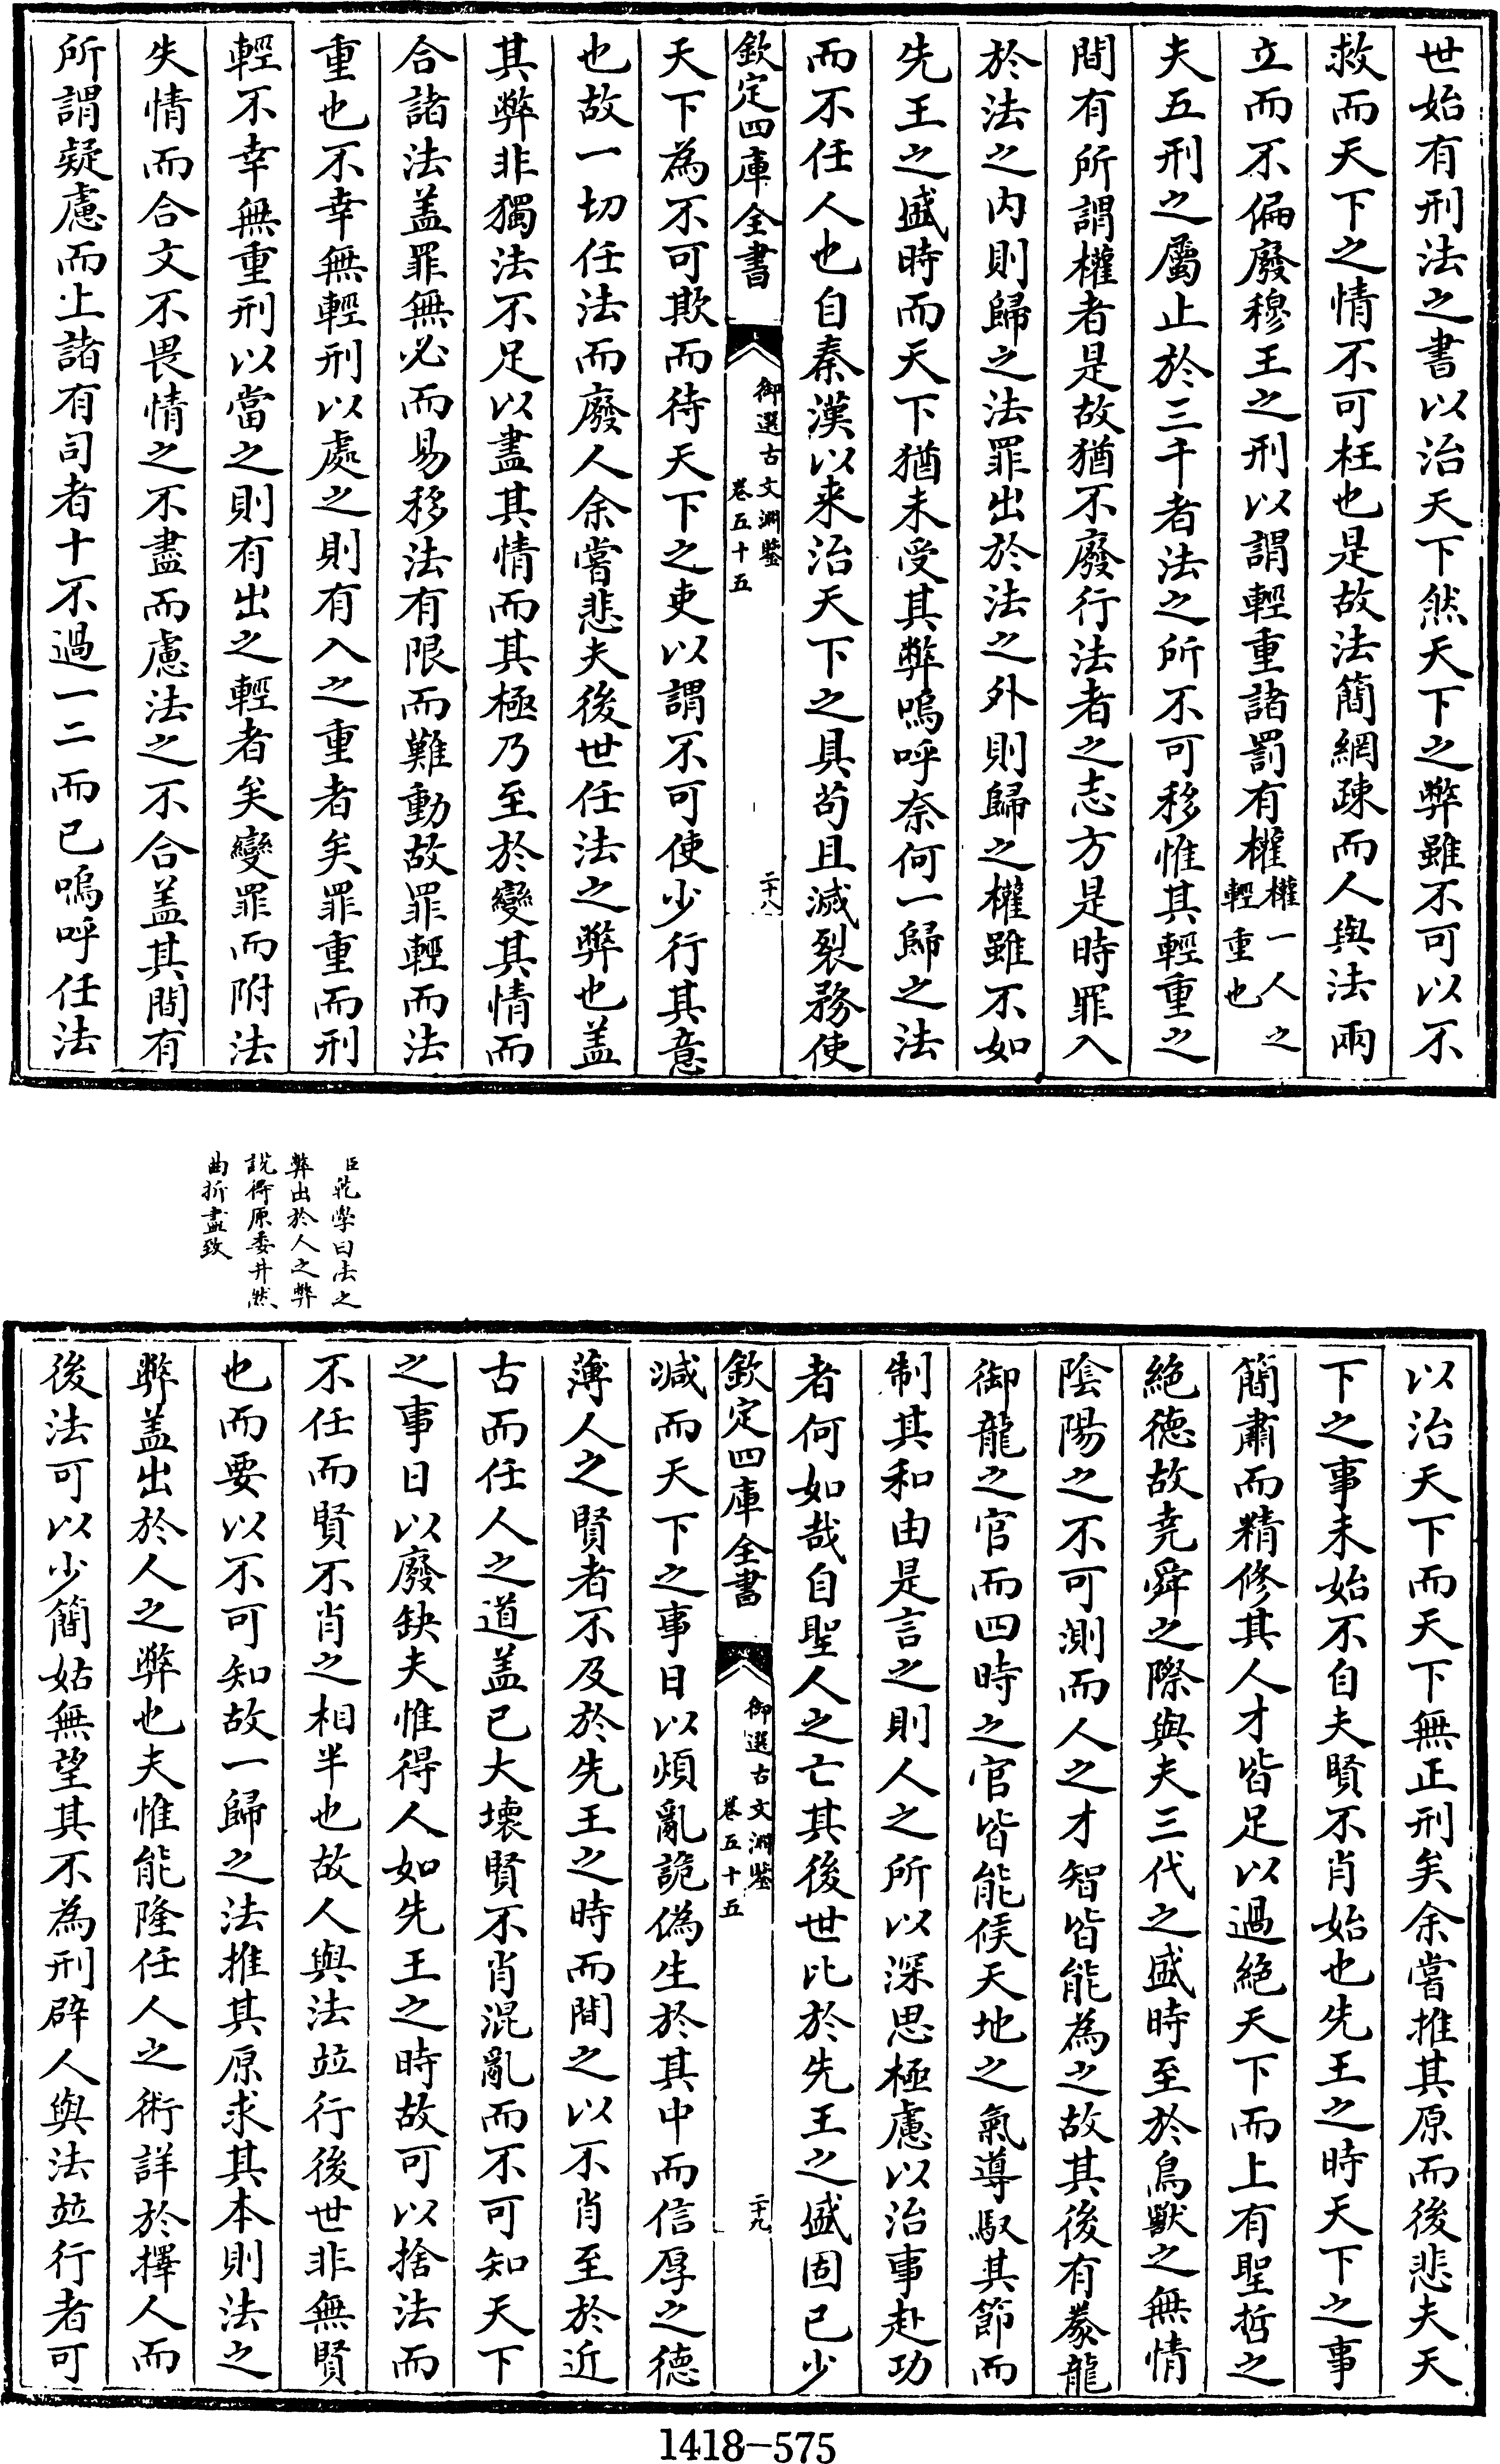 世始有刑法之書以治天下然天下之弊雖不可以不
救而天下之情不可枉也是故法簡網疎而人與法兩
立而不偏廢穆王之刑以謂輕重諸罰有權權一人之輕重也
夫五刑之屬止於三千者法之所不可移惟其輕重之
間有所謂權者是故猶不廢行法者之志方是時罪入
於法之内則歸之法罪出於法之外則歸之權雖不如
先王之盛時而天下猶未受其弊嗚呼奈何一歸之法
而不任人也自秦漢以来治天下之具苟且滅裂務使
欽定四庫全書 御選古文淵鑒 卷五十五 二十八
天下為不可欺而待天下之吏以謂不可使少行其意
也故一切任法而廢人余嘗悲夫後世任法之弊也盖
其弊非獨法不足以盡其情而其極乃至於變其情而
合諸法盖罪無必而易移法有限而難動故罪輕而法
重也不幸無輕刑以處之則有入之重者矣罪重而刑
輕不幸無重刑以當之則有出之輕者矣變罪而附法
失情而合文不畏情之不盡而慮法之不合盖其間有
所謂疑慮而上諸有司者十不過一二而已嗚呼任法
臣乾學曰法之
弊出於人之弊
說得原委井然
曲折盡致
以治天下而天下無正刑矣余嘗推其原而後悲夫天
下之事未始不自夫賢不肖始也先王之時天下之事
簡肅而精修其人才皆足以過絶天下而上有聖哲之
絶德故堯舜之際與夫三代之盛時至於鳥獸之無情
陰陽之不可測而人之才智皆能為之故其後有豢龍
御龍之官而四時之官皆能候天地之氣導馭其節而
制其和由是言之則人之所以深思極慮以治事赴功
者何如哉自聖人之亡其後世比於先王之盛固已少
欽定四庫全書 御選古文淵鑒 卷五十五 二十九
減而天下之事日以煩亂詭偽生於其中而信厚之德
薄人之賢者不及於先王之時而間之以不肖至於近
古而任人之道盖已大壊賢不肖混亂而不可知天下
之事日以廢缺夫惟得人如先王之時故可以捨法而
不任而賢不肖之相半也故人與法並行後世非無賢
也而要以不可知故一歸之法推其原求其本則法之
弊盖出於人之弊也夫惟能隆任人之術詳於擇人而
後法可以少簡姑無望其不為刑辟人與法並行者可
1418-575